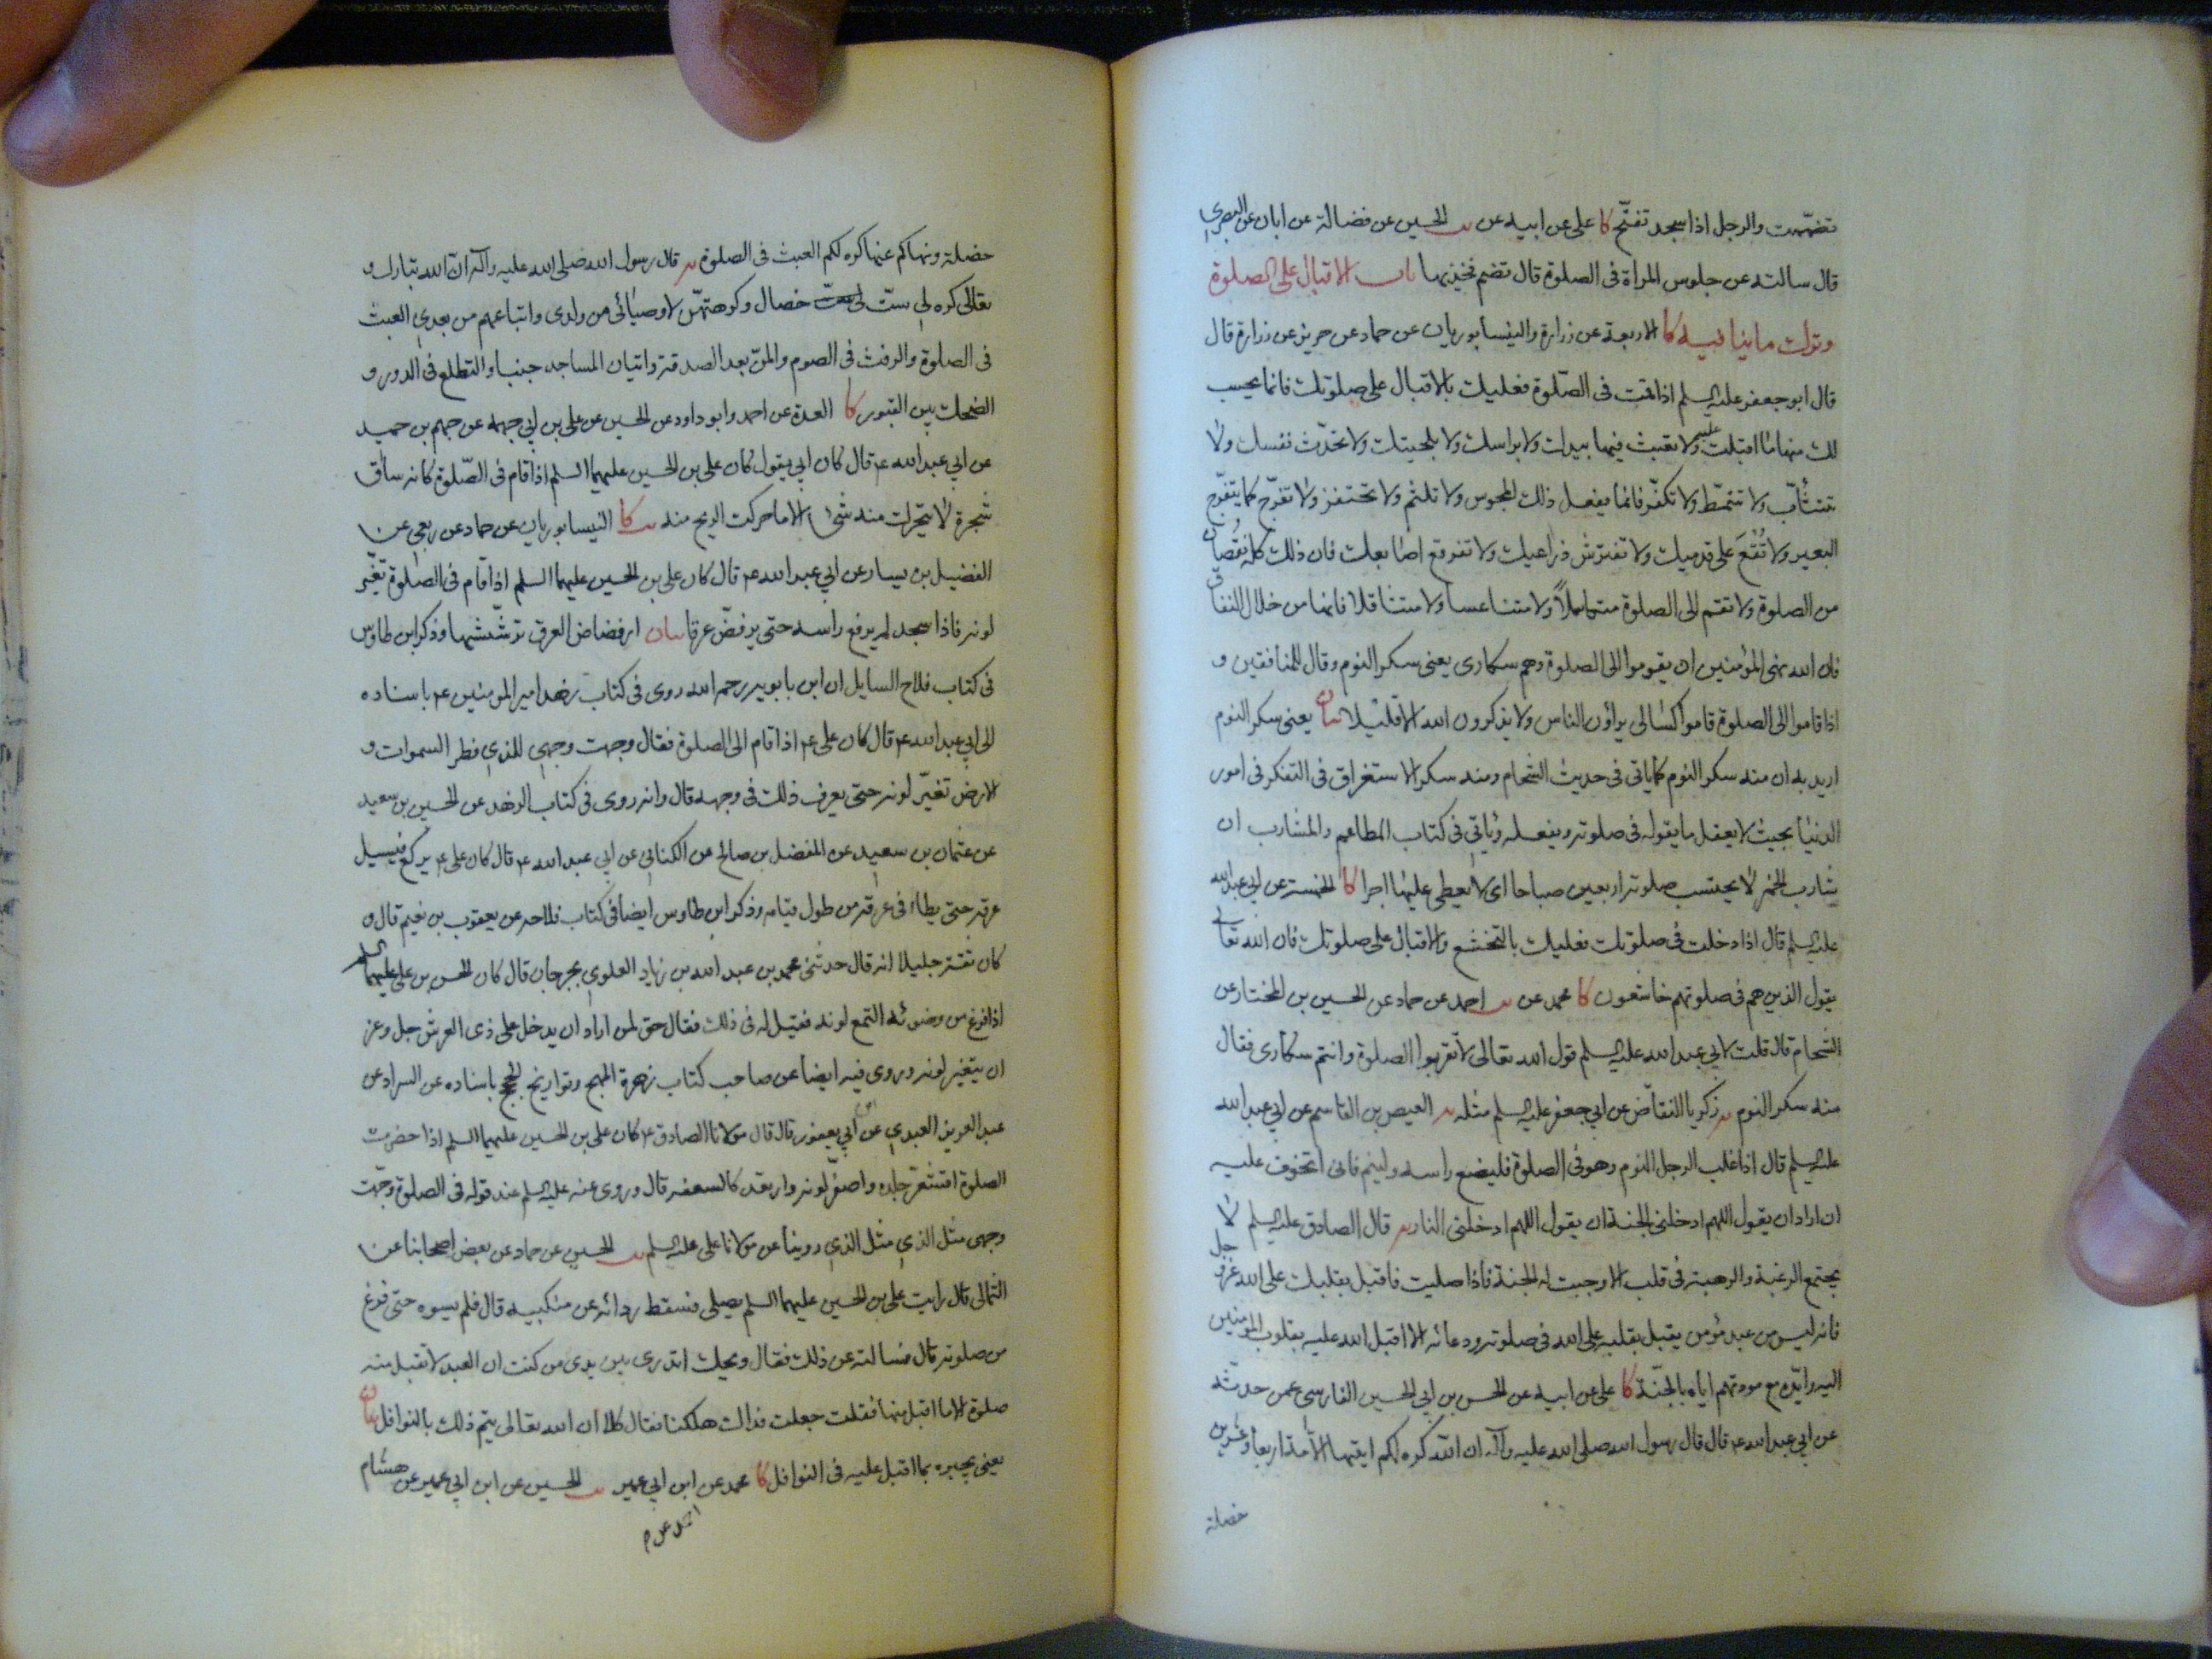 تضممت والرجل اذا سجد تفتح كا على عن ابيه عن يب الحسين عن فضالة عن ابان عن البصرى
قال سالته عن جلوس المراة فى الصلوة قال تضم فخذيها باب الاقبال على الصلوة
وترك ما ينافيه كا الاربعة عن زرارة والنيسابوريان عن حماد عن حريز عن زرارة قال
قال ابو جعفر عليه السلم اذا قمت فى الصّلوة فعليك بالاقبال على صلوتك فانما يحسب
لك منها ما اقبلت عليه ولا تعبث فيها بيدك ولا براسك ولا بلحيتك ولا تحدّث نفسك ولا
تتثأب ولا تتمطّ ولا تكفّر فانما يفعل ذلك المجوس ولا تلثم ولا تحتفز ولا تفرّج كما يتفرّج
البعير ولا تُقْعَ على قدميك ولا تفترش ذراعيك ولا تفرقع اصابعك فان ذلك كله نقصان
من الصلوة ولا تقم الى الصلوة متكاسلاً ولا متناعسا ولا متثاقلا فانها من خلال النفاق
فان الله نهى المؤمنين ان يقوموا الى الصلوة وهم سكارى يعنى سكر النوم وقال للمنافقين و
اذا قاموا الى الصلوة قاموا كسالى يراؤن الناس ولا يذكرون الله الا قليلا بيان يعنى سكر النوم
اريد به ان منه سكر النوم كما ياتى فى حديث الشحام ومنه سكر الاستغراق فى التفكر فى امور
الدنيا بحيث لا يعقل ما يقوله فى صلوته ويفعله وياتى فى كتاب المطاعم والمشارب ان
شارب الخمر لا يحتسب صلوته اربعين صباحا اى لا يعطى عليها اجرا كا الخمسة عن ابى عبد الله
عليه السلم قال اذا دخلت فى صلوتك فعليك بالتخشع والاقبال على صلوتك فان الله تعالى
يقول الذين هم فى صلوتهم خاشعون كا محمد عن يب احمد عن حماد عن الحسين بن المختار عن
الشحام قال قلت لابى عبد الله عليه السلم قول الله تعالى لا تقربوا الصلوة وانتم سكارى فقال
منه سكر النوم يه زكريا النقاض عن ابى جعفر عليه السلم مثله يه العيص بن القاسم عن ابى عبد الله
عليه السلم قال اذا غلب الرجل النوم وهو فى الصلوة فليضع راسه ولينم فانى اتخوف عليه
ان اراد ان يقول اللهم ادخلنى الجنة ان يقول اللهم ادخلنى النار يه قال الصادق عليه السلم لا
يجتمع الرغبة والرهبة فى قلب الا وجبت له الجنة فاذا صليت فاقبل بقلبك على الله عز و جل
فانه ليس من عبد مؤمن يقبل بقلبه على الله فى صلوته ودعائه الا اقبل الله عليه بقلوب المؤمنين
اليه وايّده مع مودتهم اياه بالجنّة كا على عن ابيه عن الحسن بن ابى الحسين الفارسى عمن حدثه
عن ابى عبد الله ع قال قال رسول الله صلى الله عليه وآله ان الله كره لكم ايتها الامة اربعا وعشرين
خصلة
خصلة ونهاكم عنها كره لكم العبث فى الصلوة يه قال رسول الله صلى الله عليه وآله ان الله تبارك و
تعالى كره لى ستّ خصال وكرهتهنّ لاوصيائى من ولدى واتباعهم من بعدى العبث
فى الصلوة والرفث فى الصوم والمنّ بعد الصدقة واتيان المساجد جنبا والتطلع فى الدور و
الضحك بين القبور كا العدة عن احمد وابو داود عن الحسين عن على بن ابى جهمه عن جهم بن حميد
عن ابى عبد الله ع قال كان ابى يقول كان على بن الحسين عليهما السلم اذا قام فى الصّلوة كانه ساق
شجرة لا يتحرك منه شئ الا ما حركت الريح منه يب كا النيسابوريان عن حماد عن ربعى عن
الفضيل بن يسار عن ابى عبد الله ع قال كان على بن الحسين عليهما السلم اذا قام فى الصلوة تغيّر
لونه فاذا سجد لم يرفع راسه حتى يرفضّ عرقا بيان ارفضاض العرق ترشّشها وذكر ابن طاوس
فى كتاب فلاح السايل ان ابن بابويه رحمه الله روى فى كتاب زهد امير المؤمنين ع باسناده
الى ابى عبد الله ع قال كان على ع اذا قام الى الصلوة فقال وجهت وجهى للذى فطر السموات و
الارض تغيّر لونه حتى يعرف ذلك فى وجهه قال وانه روى فى كتاب الزهد عن الحسين بن سعيد
عن عثمان بن سعيد عن المفضل بن صالح عن الكنانى عن ابى عبد الله ع قال كان على ع يركع فيسيل
عرقه حتى يطأ فى عرقه من طول قيامه وذكر ابن طاوس ايضا فى كتاب فلاحه عن يعقوب بن نعيم قال و
كان ثقة جليلا انه قال حدثنى محمد بن عبد الله بن زياد العلوى بجرجان قال كان الحسن بن على عليهما السلم
اذا فرغ من وضوئه التمع لونه فقيل له فى ذلك فقال حق لمن اراد ان يدخل على ذى العرش جل وعز
ان يتغير لونه وروى فيه ايضا عن صاحب كتاب زهرة المهج وتواريخ الحجج باسناده عن السراد عن
عبد العزيز العبدى عن ابى يعفور قال قال مولانا الصادق ع كان على بن الحسين عليهما السلم اذا حضرت
الصلوة اقشعر جلده واصفرّ لونه وارتعد كالسعفه قال وروى عنه عليه السلم عند قوله فى الصلوة وجّهت
وجهى مثل الذى مثل الذى روينا عن مولانا على عليه السلم يب الحسين عن حماد عن بعض اصحابنا عن
الثمالى قال رايت على بن الحسين عليهما السلم يصلى فسقط ردائه عن منكبيه قال فلم يسوه حتى فرغ
من صلوته قال فسالته عن ذلك فقال ويحك اتدرى بين يدى من كنت ان العبد لا تقبل منه
صلوة الا ما اقبل منها فقلت جعلت فداك هلكنا فقال كلا ان الله تعالى يتم ذلك بالنوافل بيان
يعنى يجبره بما اقبل عليه فى النوافل كا محمد عن ابن ابى عمير يب الحسين عن ابن ابى عمير عن هشام